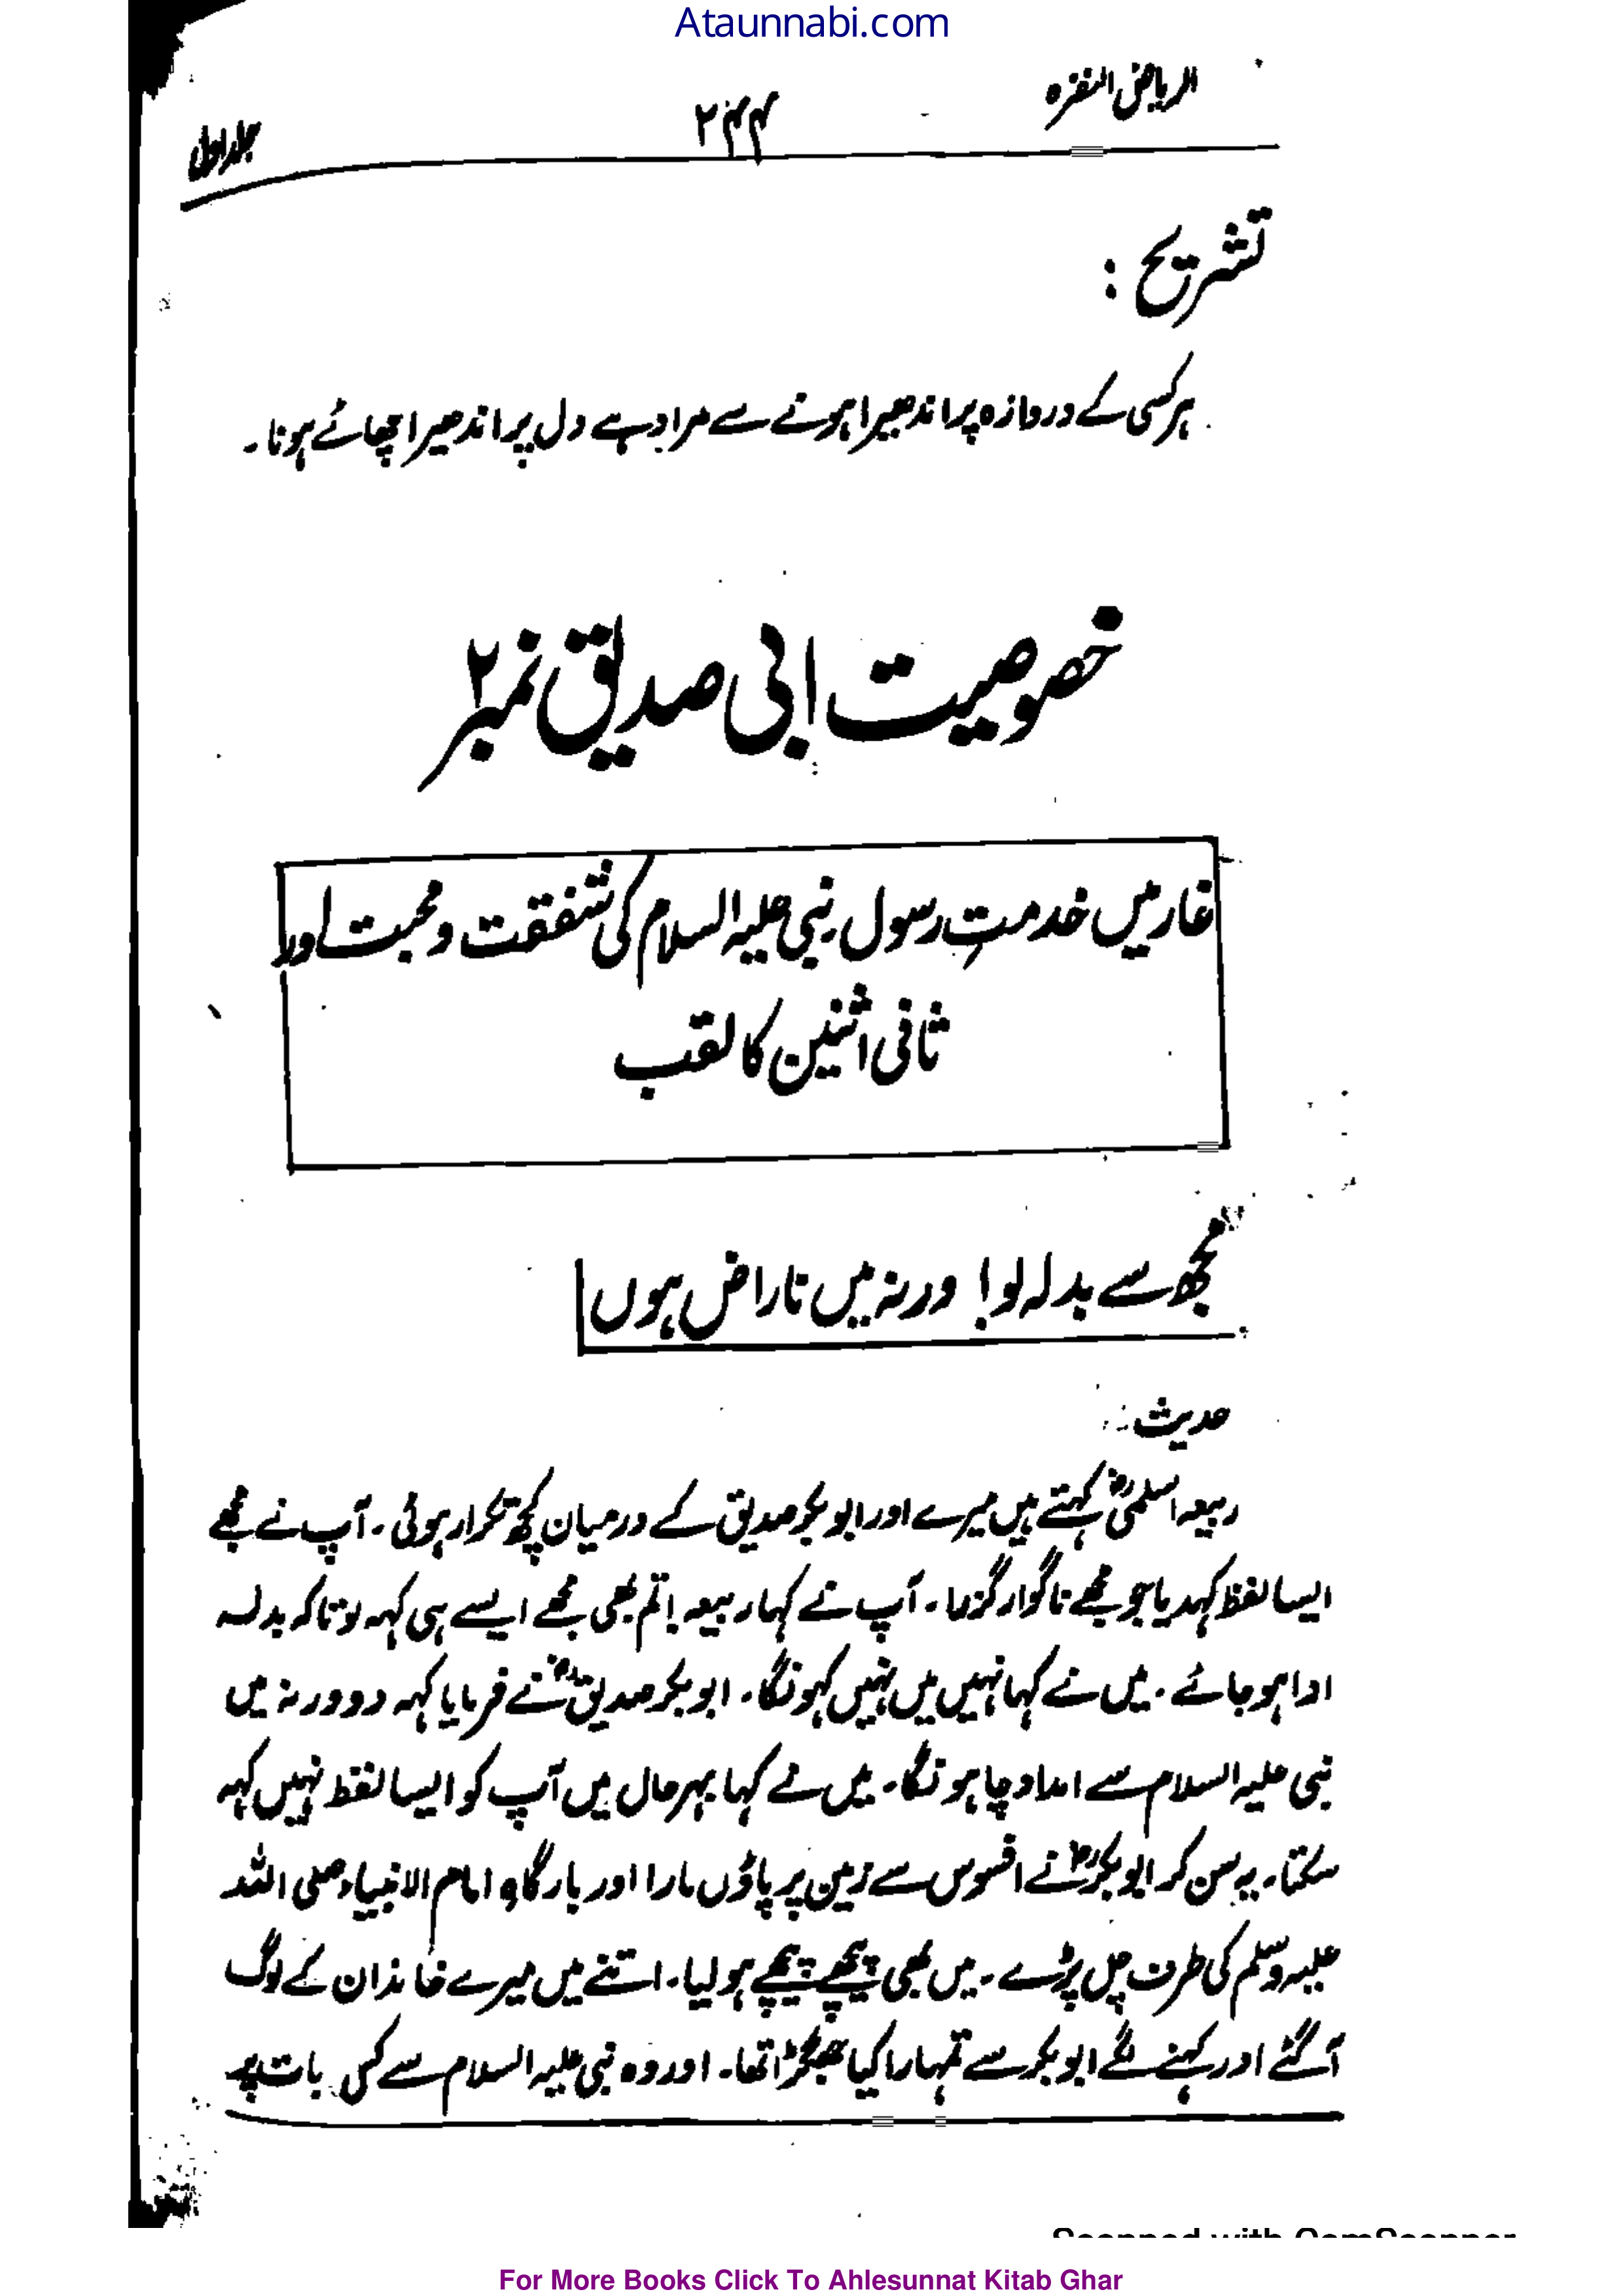 Ataunnabi.com
الریاض النضرہ
۲۴۴
جلد اول
تشریح :
ہر کسی کے دروازہ پر اندھیرا ہونے سے مراد ہے دل پر اندھیرا چھائے ہونا۔
خصوصیت ابی صدیق نمبر ۲
غار میں خدمتِ رسول نبی علیہ السلام کی شفقت و محبت اور
ثانی اثنین کا لقب
مجھ سے بدلہ لو! ورنہ میں ناراض ہوں
حدیث :
ربیعہ اسلمیؓ کہتے ہیں میرے اور ابو بکر صدیق کے درمیان کچھ تکرار ہوئی۔ آپ نے مجھے
ایسا لفظ کہدیا جو مجھے ناگوار گزرا۔ آپ نے کہا ربیعہ! تم بھی مجھے ایسے ہی کہہ لو تاکہ بدلہ
ادا ہو جائے۔ میں نے کہا نہیں میں نہیں کہونگا۔ ابو بکر صدیقؓ نے فرمایا کہہ دو ورنہ میں
نبی علیہ السلام سے امداد چاہونگا۔ میں نے کہا بہر حال میں آپ کو ایسا لفظ نہیں کہہ
سکتا۔ یہ سن کر ابو بکرؓ نے افسوس سے زمین پر پاؤں مارا اور بارگاہِ امام الانبیاء صلی اللہ
علیہ وسلم کی طرف چل پڑے۔ میں بھی پیچھے پیچھے ہو لیا۔ اتنے میں میرے خاندان کے لوگ
آ گئے اور کہنے لگے ابو بکر سے تمہارا کیا جھگڑا تھا۔ اور وہ نبی علیہ السلام سے کس بات پر
Scanned with CamScanner
For More Books Click To Ahlesunnat Kitab Ghar